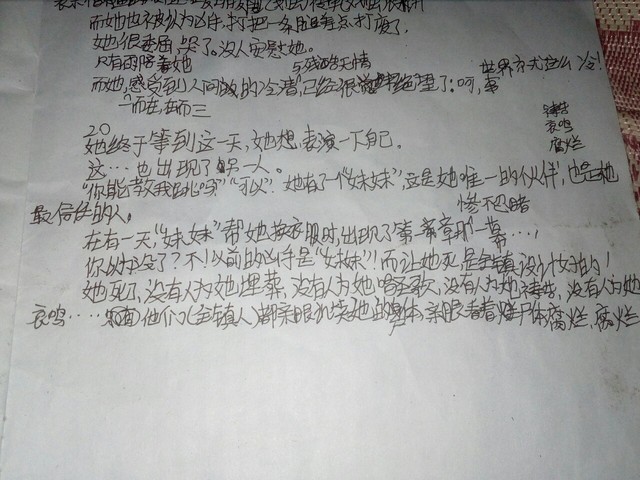 而她也被认为凶手,打把一条腿差点打废了。
她很委屈,哭了。没人安慰她。
只有雨陪着她 与残酷无情 世界方式这么冷!
而她,感受到人间 的冷清,已经很 绝望了:呵,
一而在,再而三
20
她终于等到这一天,她想,表演一下自己。 祷告
哀鸣
腐烂
这…也出现了另一人。
"你能教我跳吗?""可以"!她有了一个"妹妹",这是她唯一的伙伴,也是她
最信任的人。 惨不忍睹
在有一天,"妹妹"帮她换衣服时,出现了第一章那一幕…!
你以为没了?不!以前的凶手是"妹妹"!而让她死,是全镇设计好的!
她死了,没有人为她埋葬,没有人为她唱 歌,没有人为她祷告,没有人为她
哀鸣…… 他们(全镇人)都亲眼 她的身体,亲眼看着 尸体腐烂,腐烂